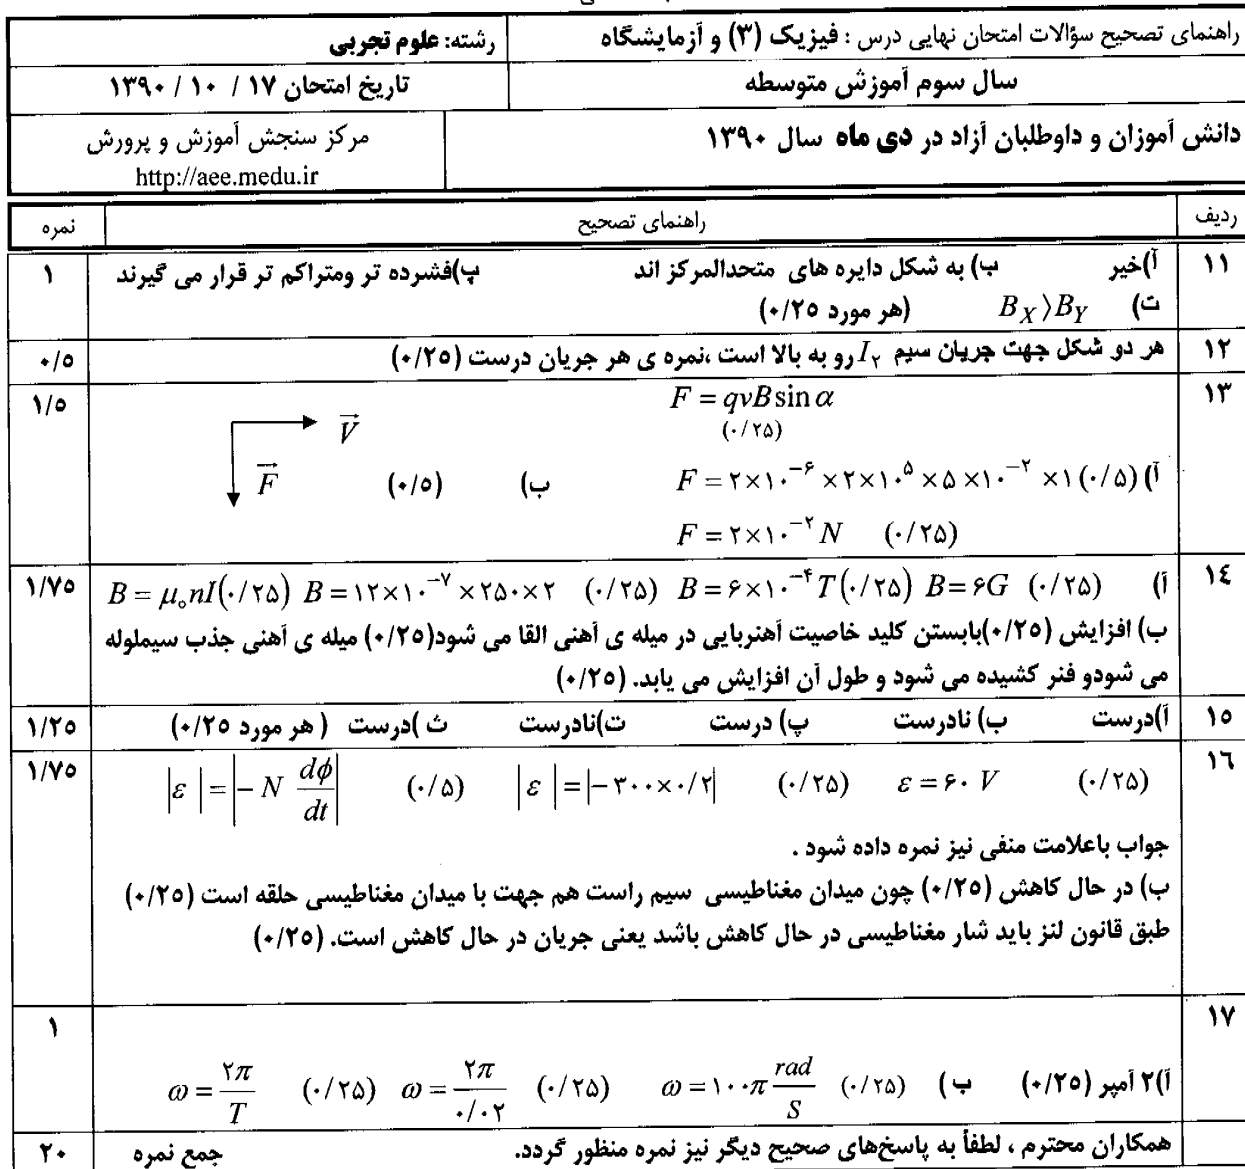 راهنمای تصحیح سؤالات امتحان نهایی درس : فیزیک (۳) و آزمایشگاه رشته: علوم تجربی
سال سوم آموزش متوسطه تاریخ امتحان ۱۷ / ۱۰ / ۱۳۹۰
دانش آموزان و داوطلبان آزاد در دی ماه سال ۱۳۹۰ مرکز سنجش آموزش و پرورش
http://aee.medu.ir
ردیف راهنمای تصحیح نمره
۱۱ آ)خیر ب) به شکل دایره های متحدالمرکز اند پ)فشرده تر ومتراکم تر قرار می گیرند ۱
ت) B_X ⟩ B_Y (هر مورد ۰/۲۵)
۱۲ هر دو شکل جهت جریان سیم I_۲ رو به بالا است ،نمره ی هر جریان درست (۰/۲۵) ۰/۵
۱۳ F = qvB sin α ۱/۵
(۰/۲۵)
V
آ) F = ۲×۱۰^{-۶} ×۲×۱۰^۵ ×۵×۱۰^{-۲} ×۱ (۰/۵) ب) (۰/۵) F
F = ۲×۱۰^{-۲} N (۰/۲۵)
۱٤ آ) B = μ_۰nI(۰/۲۵) B = ۱۲×۱۰^{-۷} ×۲۵۰×۲ (۰/۲۵) B = ۶×۱۰^{-۴} T(۰/۲۵) B = ۶G (۰/۲۵) ۱/۷۵
ب) افزایش (۰/۲۵)بابستن کلید خاصیت آهنربایی در میله ی آهنی القا می شود(۰/۲۵) میله ی آهنی جذب سیملوله
می شودو فنر کشیده می شود و طول آن افزایش می یابد. (۰/۲۵)
۱۵ آ)درست ب) نادرست پ) درست ت)نادرست ث )درست ( هر مورد ۰/۲۵) ۱/۲۵
۱٦ |ε| = |-N dφ/dt| (۰/۵) |ε| = |-۳۰۰×۰/۲| (۰/۲۵) ε = ۶۰ V (۰/۲۵) ۱/۷۵
جواب باعلامت منفی نیز نمره داده شود .
ب) در حال کاهش (۰/۲۵) چون میدان مغناطیسی سیم راست هم جهت با میدان مغناطیسی حلقه است (۰/۲۵)
طبق قانون لنز باید شار مغناطیسی در حال کاهش باشد یعنی جریان در حال کاهش است. (۰/۲۵)
۱۷ ۱
آ)۲ آمپر (۰/۲۵) ب ) ω = ۲π/T (۰/۲۵) ω = ۲π/۰/۰۲ (۰/۲۵) ω = ۱۰۰π rad/S (۰/۲۵)
همکاران محترم ، لطفاً به پاسخ‌های صحیح دیگر نیز نمره منظور گردد. جمع نمره ۲۰